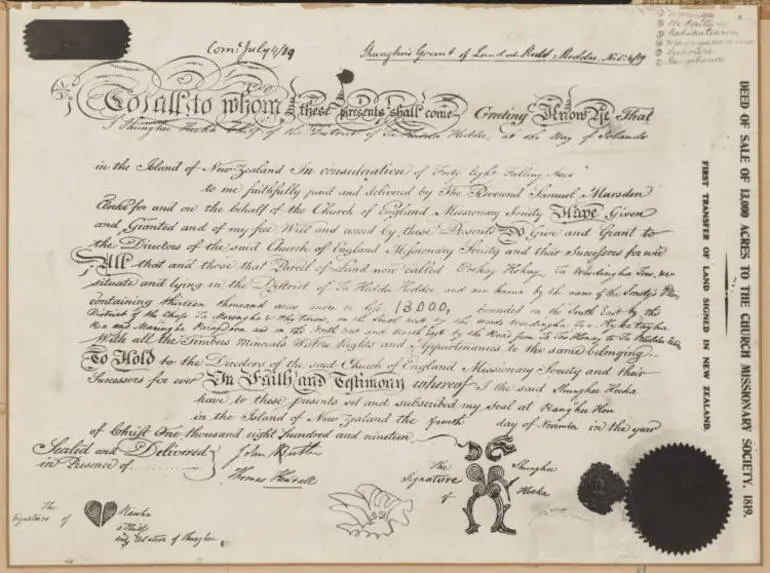 Com: July 4/19
Shunghie's Grant of Land at Kidd Keddee, Nov: 4/19
To all to whom these presents shall come Greeting Know Ye That
I Shunghee Heeka Chief of the District of Ta Keddee Keddee, at the Bay of Islands
in the Island of New Zealand In consideration of Forty Eight Falling Axes
to me faithfully paid and delivered by The Reverend Samuel Marsden
Clerke for and on the behalf of the Church of England Missionary Society Have Given
and Granted and of my free Will and accord by these Presents Do Give and Grant to
the Directors of the said Church of England Missionary Society and their Successors for ever
All that and those that Parcel of Land now called
situate and lying in the District of Ta Keddee Keddee, and now known by the name of the Society's Plain
containing thirteen thousand acres more or less 13000, bounded on the South East by the
District of the Chiefs Ta Morengha & on the South West by the Woods
and on the North West and North East by the River from to Ta Keddee
With all the Timbers Minerals Waters Rights and Appurtenances to the same belonging
To Hold to the Directors of the said Church of England Missionary Society and their
Successors for ever In Faith and Testimony whereof I the said Shunghee Heeka
have to these presents set and subscribed my seal at
in the Island of New Zealand the Fourth day of November in the year
of Christ One thousand eight hundred and nineteen.
Sealed and Delivered
in Presence of
John Butler
Thomas Kendall
The Signature of
Shunghee Heeka
The Signature of
a Chief
and Relation of Shunghee
DEED OF SALE OF 13,000 ACRES TO THE CHURCH MISSIONARY SOCIETY, 1819.
FIRST TRANSFER OF LAND SIGNED IN NEW ZEALAND.